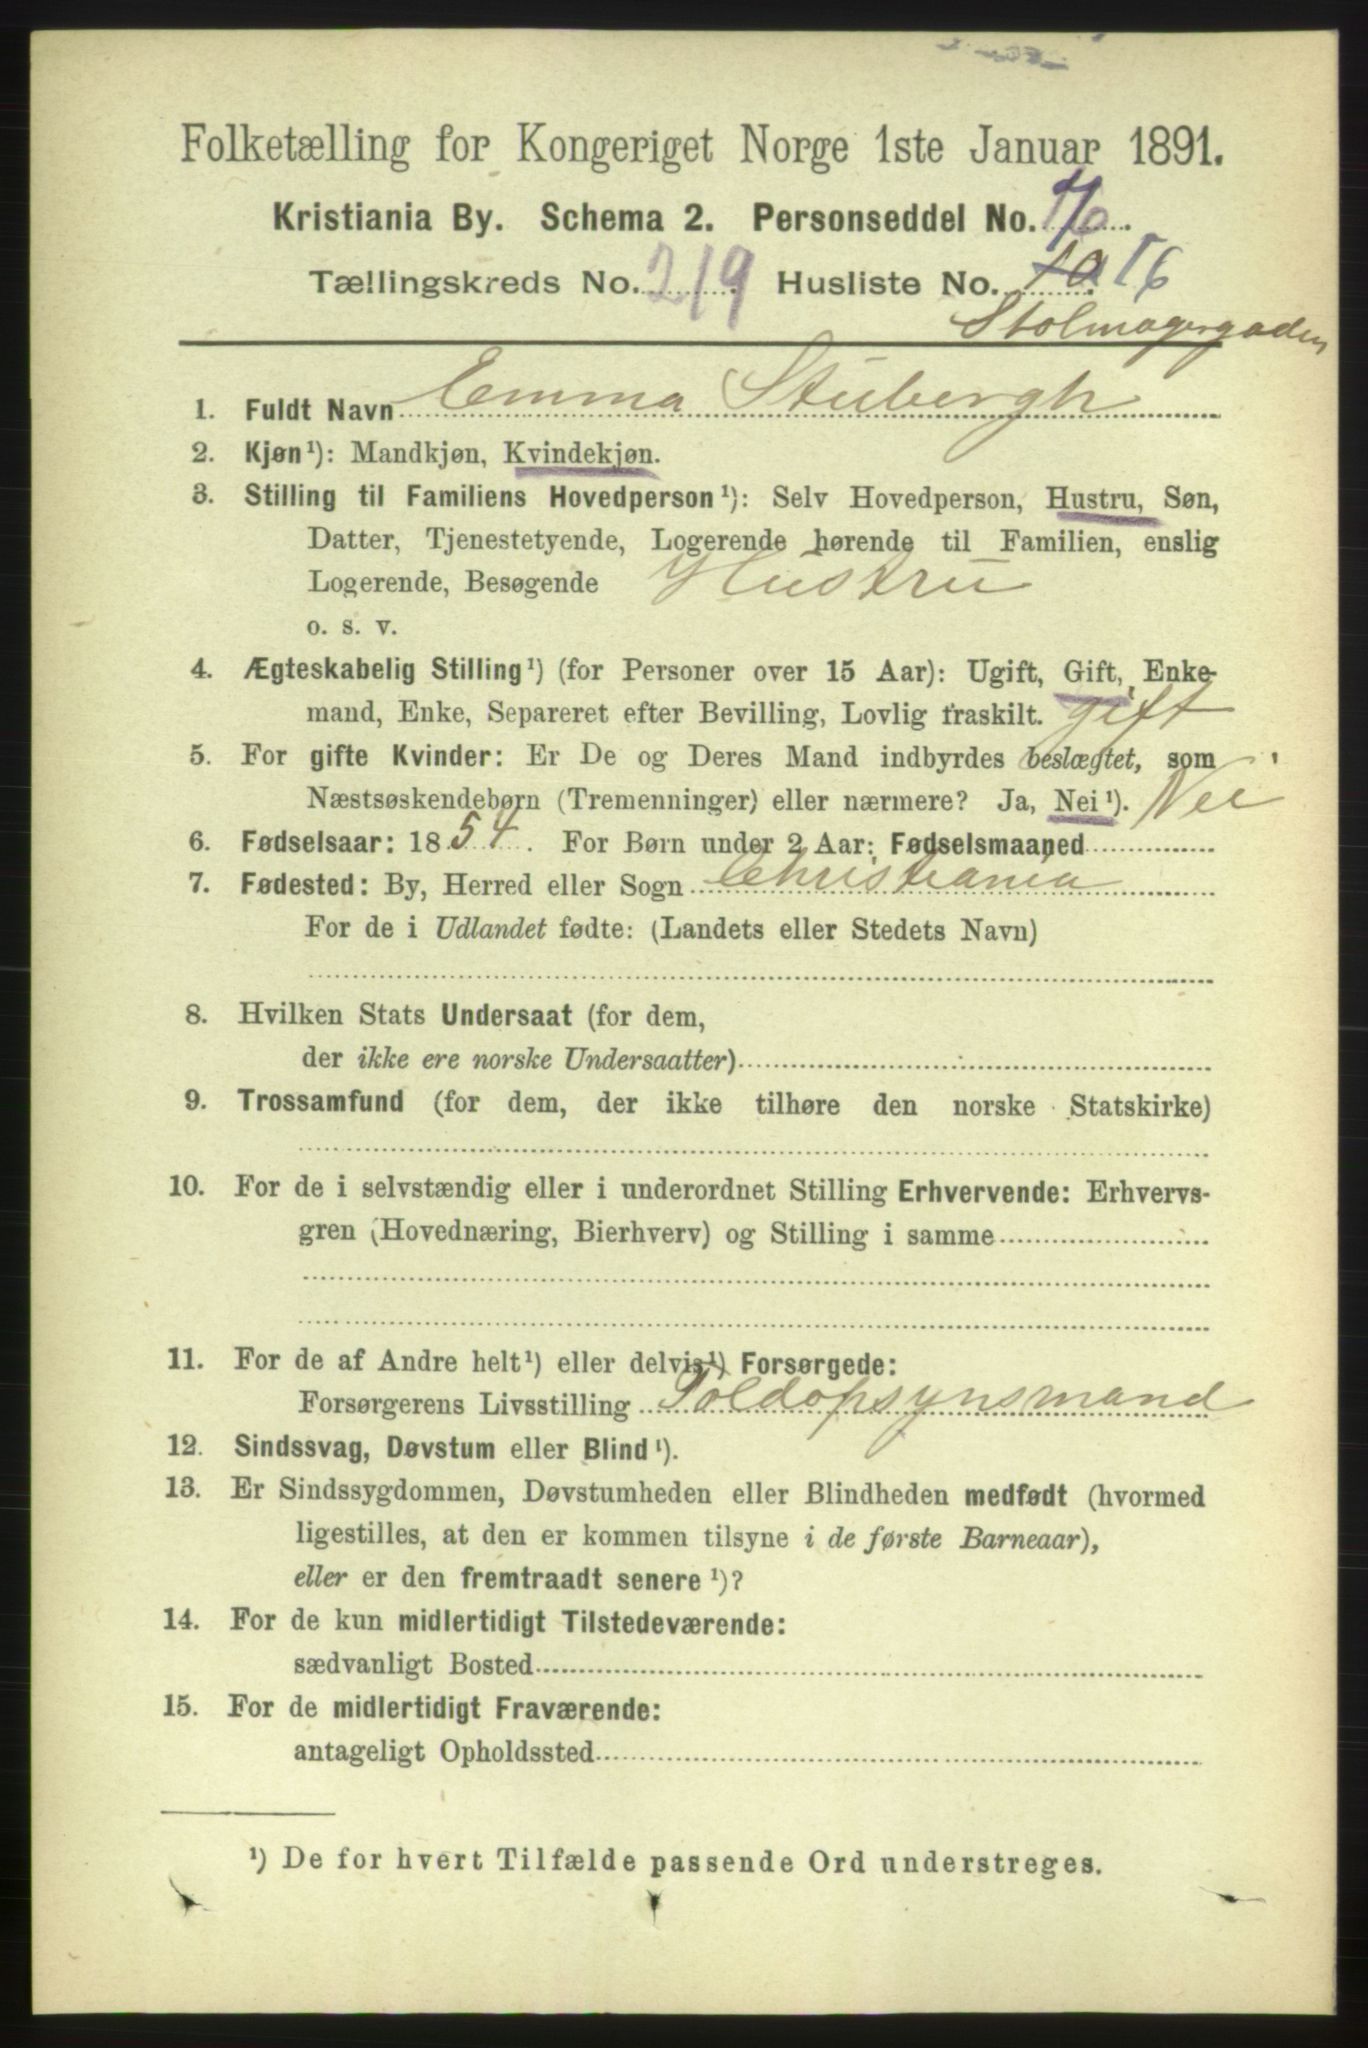 Folketælling for Kongeriget Norge 1ste Januar 1891.
Kristiania By. Schema 2. Personseddel No.
Tællingskreds No. 219 Husliste No. 10 16
Stolmagergaden
1. Fuldt Navn Emma Stubergh
2. Kjøn¹): Mandkjøn, Kvindekjøn.
3. Stilling til Familiens Hovedperson¹): Selv Hovedperson, Hustru, Søn,
Datter, Tjenestetyende, Logerende hørende til Familien, enslig
Logerende, Besøgende Hustru
o. s. v.
4. Ægteskabelig Stilling¹) (for Personer over 15 Aar): Ugift, Gift, Enke-
mand, Enke, Separeret efter Bevilling, Lovlig fraskilt. gift
5. For gifte Kvinder: Er De og Deres Mand indbyrdes beslægtet, som
Næstsøskendebørn (Tremenninger) eller nærmere? Ja, Nei¹). Nei
6. Fødselsaar: 1854. For Børn under 2 Aar: Fødselsmaaned
7. Fødested: By, Herred eller Sogn Christiania
For de i Udlandet fødte: (Landets eller Stedets Navn)
8. Hvilken Stats Undersaat (for dem,
der ikke ere norske Undersaatter)
9. Trossamfund (for dem, der ikke tilhøre den norske Statskirke)
10. For de i selvstændig eller i underordnet Stilling Erhvervende: Erhvervs-
gren (Hovednæring, Bierhverv) og Stilling i samme
11. For de af Andre helt¹) eller delvis¹) Forsørgede:
Forsørgerens Livsstilling Toldopsynsmand
12. Sindssvag, Døvstum eller Blind¹).
13. Er Sindssygdommen, Døvstumheden eller Blindheden medfødt (hvormed
ligestilles, at den er kommen tilsyne i de første Barneaar),
eller er den fremtraadt senere¹)?
14. For de kun midlertidigt Tilstedeværende:
sædvanligt Bosted
15. For de midlertidigt Fraværende:
antageligt Opholdssted
¹) De for hvert Tilfælde passende Ord understreges.